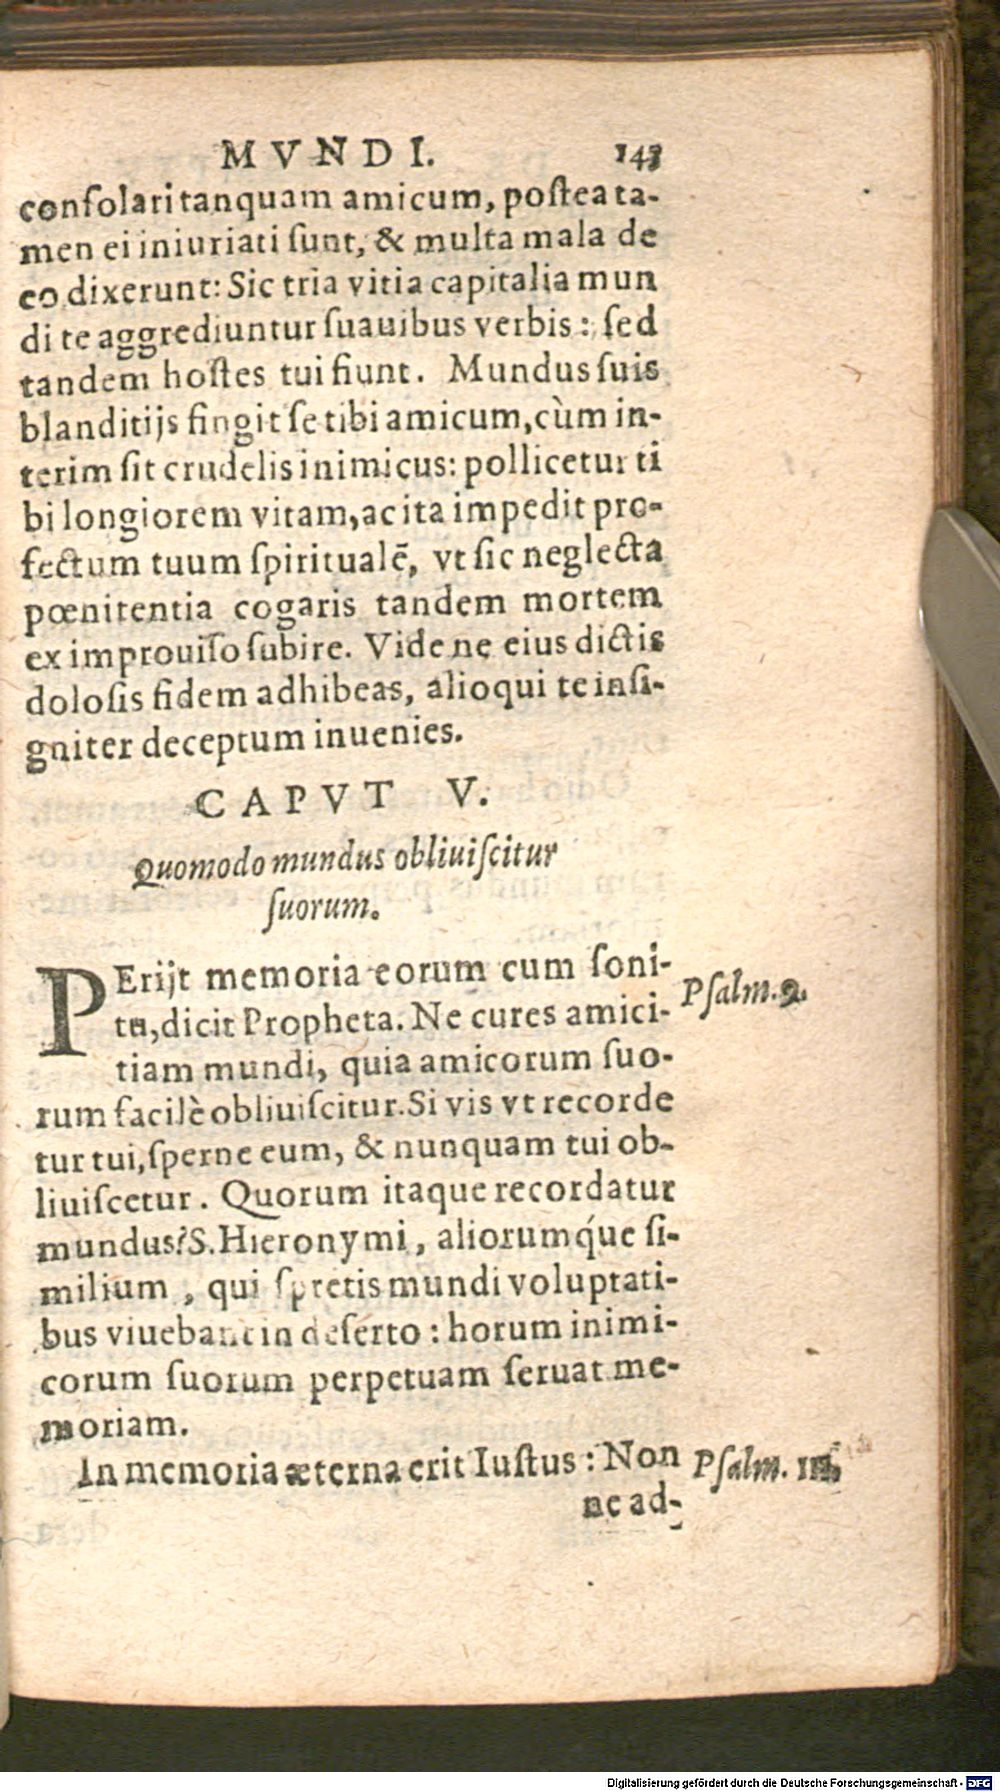 MVNDI. 143
conſolari tanquam amicum, poſtea ta-
men ei iniuriati ſunt, & multa mala de
eo dixerunt: Sic tria vitia capitalia mun
di te aggrediuntur ſuauibus verbis: ſed
tandem hoſtes tui fiunt. Mundus ſuis
blanditijs fingit ſe tibi amicum, cùm in-
terim ſit crudelis inimicus: pollicetur ti
bi longiorem vitam, ac ita impedit pro-
fectum tuum ſpiritualẽ, vt ſic neglecta
pœnitentia cogaris tandem mortem
ex improuiſo ſubire. Vide ne eius dictis
doloſis fidem adhibeas, alioqui te inſi-
gniter deceptum inuenies.
CAPVT V.
Quomodo mundus obliuiſcitur
ſuorum.
PErijt memoria eorum cum ſoni-
tu, dicit Propheta. Ne cures amici-
Pſalm. 9.
tiam mundi, quia amicorum ſuo-
rum facilè obliuiſcitur. Si vis vt recorde
tur tui, ſperne eum, & nunquam tui ob-
liuiſcetur. Quorum itaque recordatur
mundus? S. Hieronymi, aliorumq́ue ſi-
milium, qui ſpretis mundi voluptati-
bus viuebant in deſerto: horum inimi-
corum ſuorum perpetuam ſeruat me-
moriam.
In memoria æterna erit Iuſtus: Non
Pſalm.
ne ad-
Digitalisierung gefördert durch die Deutsche Forschungsgemeinschaft - DFG